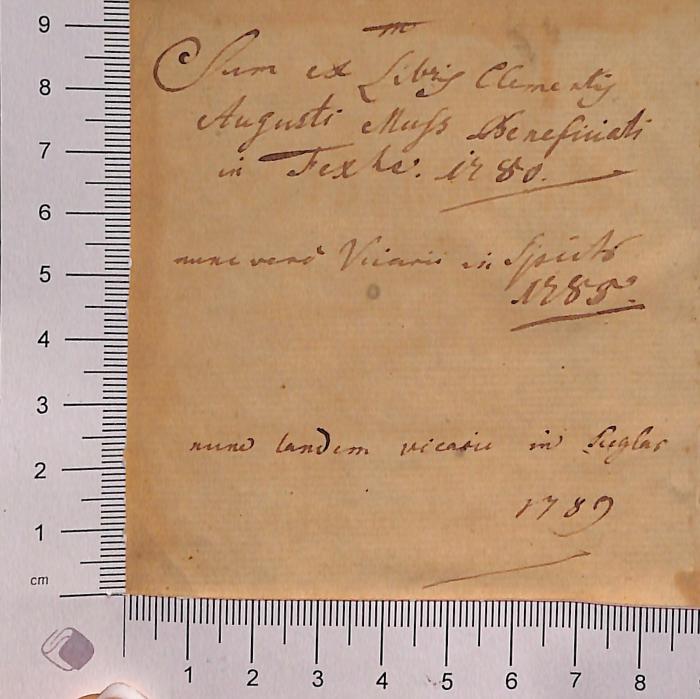 Sum ex Libris Clementis
Augusti Muss Beneficiati
in 1780.
nunc verò Vicarii in
1785.
nunc tandem vicarii in Sieglar
1789
9
8
7
6
5
4
3
2
1
cm
1 2 3 4 5 6 7 8